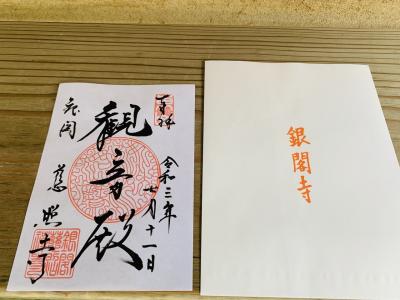 奉拝
令和三年
七月十一日
観音殿
慈照寺
銀閣寺